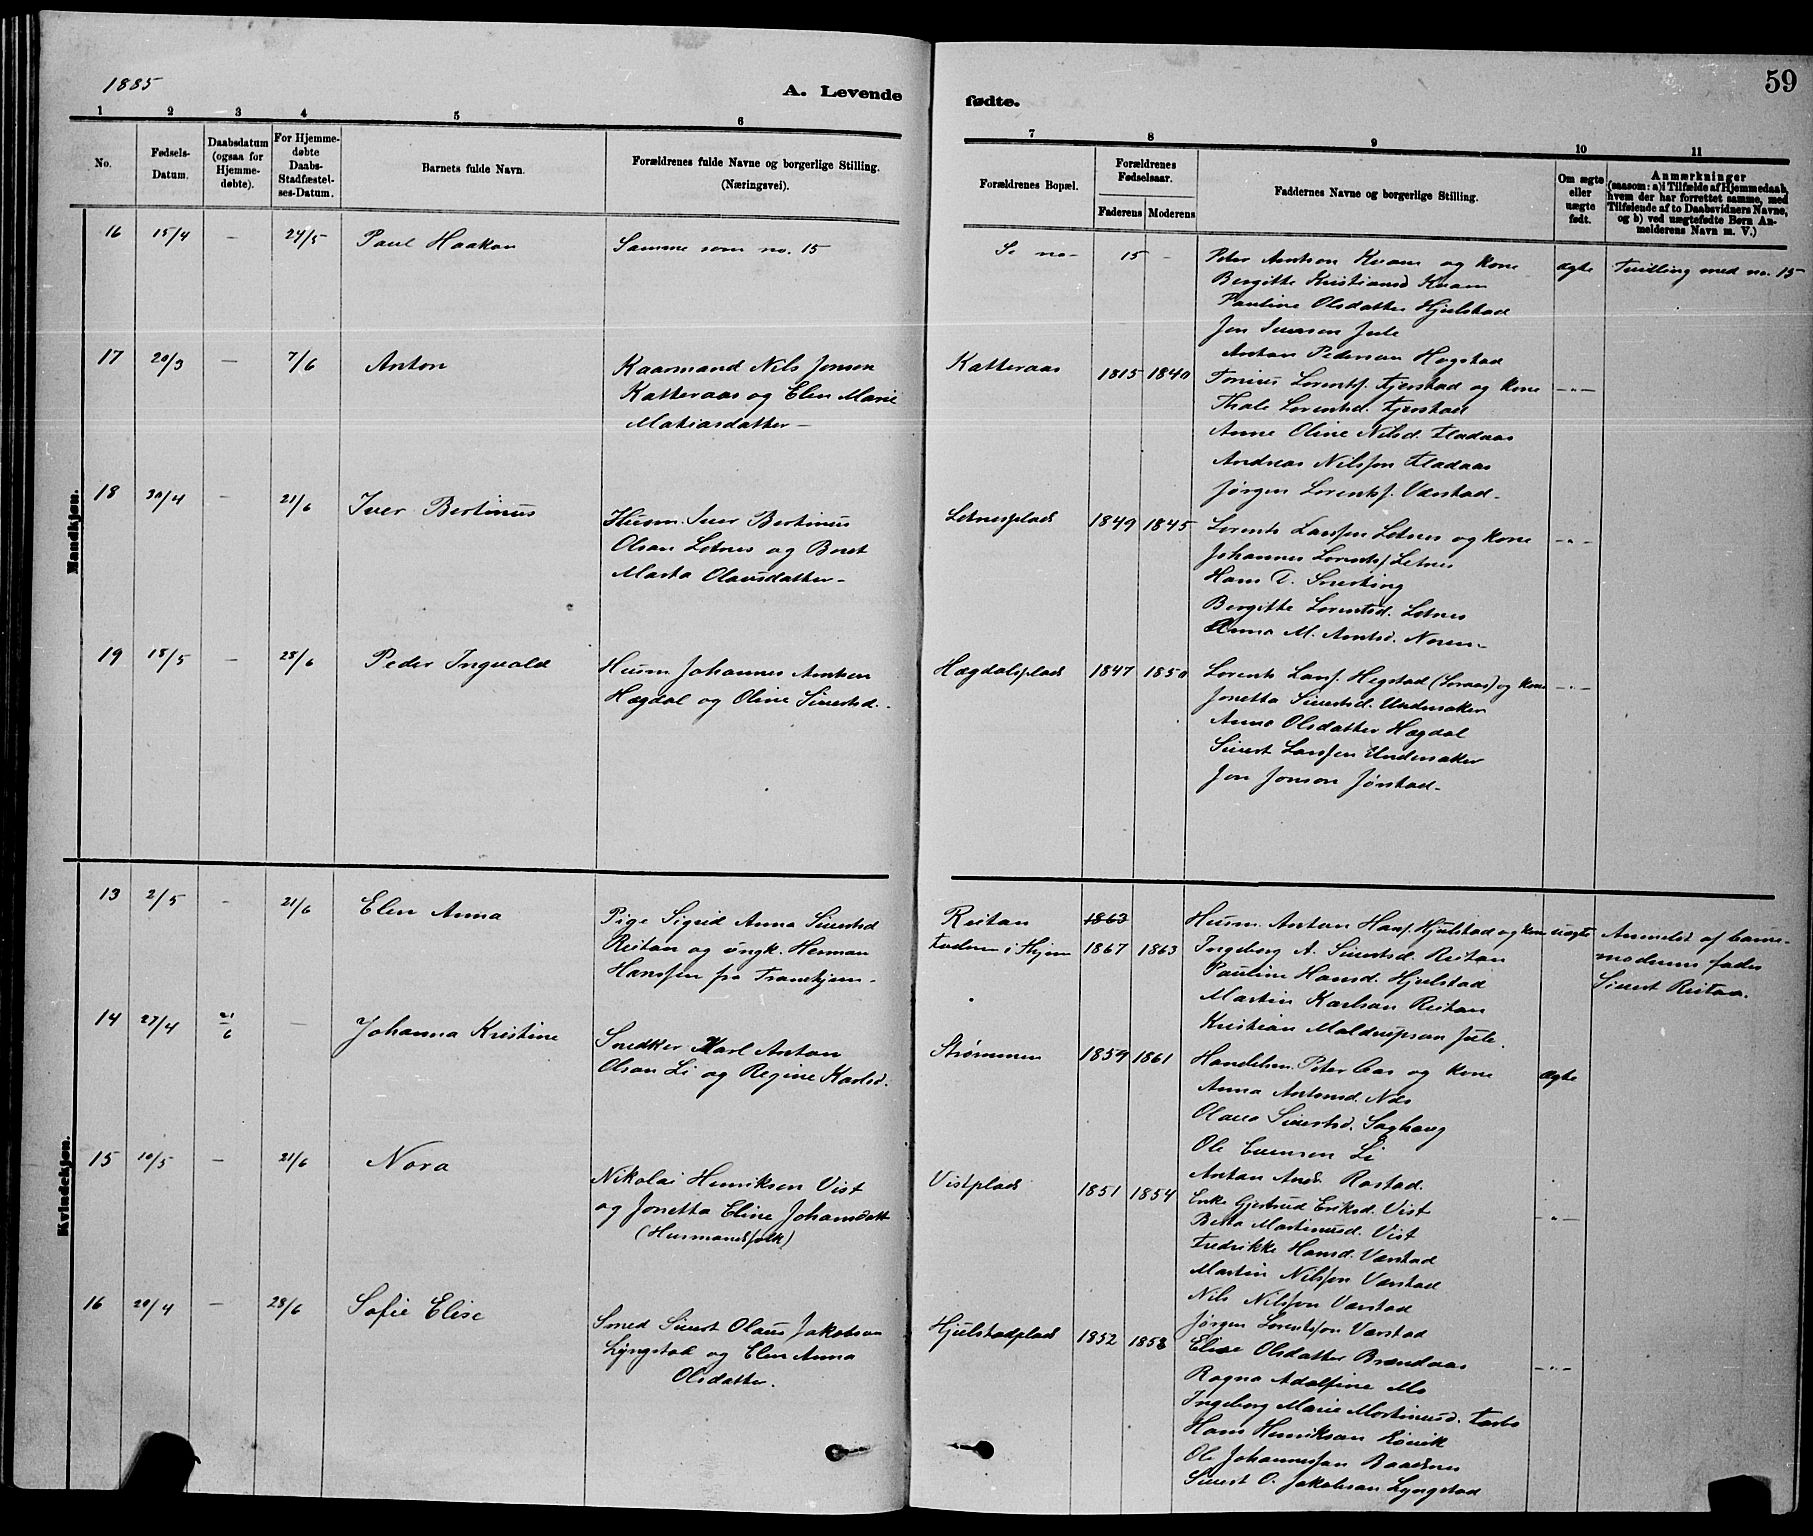 1885
A. Levende
fødte.
59
1 2 3 4 5 6 7 8 9 10 11
No.
Fødsels-
Datum.
Daabsdatum
(ogsaa for
Hjemme-
døbte).
For Hjemme-
døbte
Daabs-
Stadfæstel-
ses-Datum.
Barnets fulde Navn.
Forældrenes fulde Navne og borgerlige Stilling.
(Næringsvei).
Forældrenes Bopæl.
Forældrenes
Fødselsaar.
Faderens Moderens
Faddernes Navne og borgerlige Stilling.
Om ægte
eller
uægte
født.
Anmærkninger
(saasom: a) i Tilfælde af Hjemmedaab,
hvem der har forrettet samme, med
Tilføiende af to Daabsvidners Navne,
og b) ved uægtefødte Børn An-
melderens Navn m. V.)
Mandkjøn.
16 15/4 - 24/5 Paul Haakon
Samme som no. 15
Se no - 15 -
Peter Arntsen Kvam og kone
Bergitte Kristiansd Kvam
Pauline Olsdatter Hjulstad
Jon Iversen Jule
Anton Pedersen Hogstad
ægte
Tvilling med no. 15
17 20/3 - 7/6 Anton
Kaarmand Nils Jonsen
Katteraas og Elen Marie
Matiasdatter -
Katteraas 1815 1840
Tonius Lorentsf. Fjerstad og kone
Thale Lorentsd. Fjerstad
Anne Oline Nilsd. Fladaas
Andreas Nilssen Fladaas
Jørgen Lorentsf. Værstad -
- " -
18 30/4 - 21/6 Iver Bertinus
Husm. Iver Bertinus
Olsen Letnes og Beret
Marta Olausdatter -
Letnesplads 1849 1845
Lorents Larssen Letnes og kone
Johannes Lorentsf Letnes
Hans T. Snerting
Bergitte Lorentsd. Letnes
Anna M. Arntsd. Noren -
- " -
19 18/5 - 28/6 Peder Ingvald
Husm. Johannes Arntsen
Hægdal og Oline Sivertsd. -
Hægdalsplads 1847 1850
Lorents Larsf. Hegstad (Soraas) og kone
Jonetta Sivertsd. Undersaker
Anna Olsdatter Hægdal
Sivert Larssen Undersaker
Jon Jonson Jørstad -
- " -
Kvindekjøn.
13 2/5 - 21/6 Elen Anna
Pige Sigrid Anna Sivertsd
Reitan og ungk. Herman
Hanssen fra Tranhjem -
Reitan 1863
Faderen i Hjem 1867 1863
Husm. Anton Hansf. Hjulstad og kone
Ingeborg A. Sivertsd. Reitan
Pauline Hansd. Hjulstad
Martin Karlsen Reitan
Kristian Maldrupsen Jule.
uægte
Anmeldt af barne-
moderens fader
Sivert Reitan.
14 27/4 21/6 - Johanna Kristine
Snedker Karl Anton
Olsen Li og Regine Karlsd.
Strømmen 1859 1861
Handelsm. Peter Aas og kone
Anna Antonsd. Næs
Olava Sivertsd. Saghaug
Ole Evensen Li
Anton And. Rostad.
ægte
15 10/5 - 21/6 Nora
Nikolai Henriksen Vist
og Jonetta Eline Johansdatt
(Husmandsfolk)
Vistplads 1851 1854
Enke Gjertrud Eriksd. Vist
Berta Martinusd. Vist
Fredrikke Hansd. Værstad
Martin Nilssen Værstad
Nils Nilsson Værstad
Jørgen Lorentsson Værstad
- " -
16 20/4 - 28/6 Sofie Elise
Smed Sivert Olaus Jakobsen
Lyngstad og Elen Anna
Olsdatter.
Hjulstadplads 1852 1853
Elise Olsdatter Brandaas
Ragna Adolfine Mo
Ingeborg Marie Martinusd. Forbo
Hans Henriksen Røvik
Ole Johannessen Baadsnes
Sivert O. Jakobsen Lyngstad
- " -